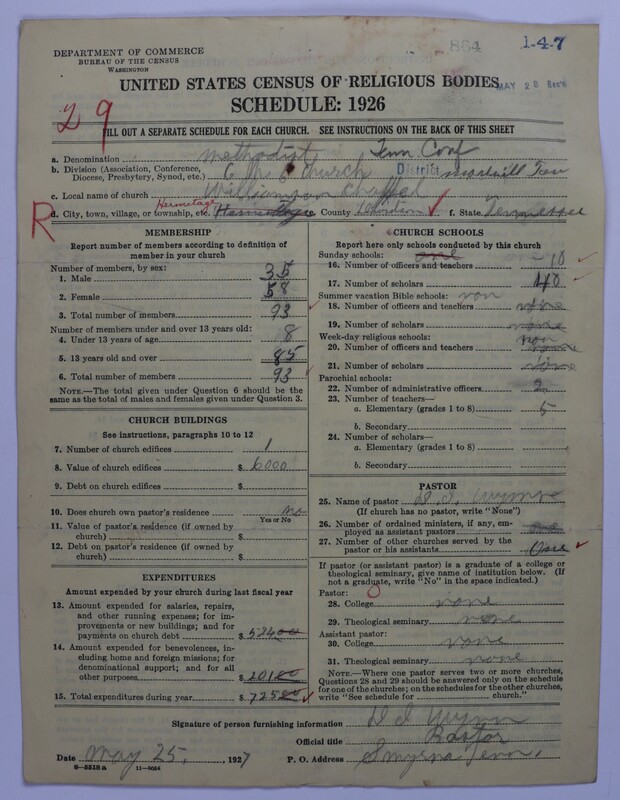 DEPARTMENT OF COMMERCE
BUREAU OF THE CENSUS
WASHINGTON
864
1-4-7
MAY 28
UNITED STATES CENSUS OF RELIGIOUS BODIES
SCHEDULE: 1926
29
FILL OUT A SEPARATE SCHEDULE FOR EACH CHURCH. SEE INSTRUCTIONS ON THE BACK OF THIS SHEET
a. Denomination Methodist Tenn Conf
b. Division (Association, Conference, Diocese, Presbytery, Synod, etc.) C. M. E church District Nashvill Ten
c. Local name of church Williamson Chappel
R
d. City, town, village, or township, etc. Hermitage Hermitage County f. State Tennessee
MEMBERSHIP
Report number of members according to definition of
member in your church
Number of members, by sex:
1. Male 35
2. Female 58
3. Total number of members 93
Number of members under and over 13 years old:
4. Under 13 years of age 8
5. 13 years old and over 85
6. Total number of members 93
NOTE.—The total given under Question 6 should be
same as the total of males and females given under Question 3.
CHURCH BUILDINGS
See instructions, paragraphs 10 to 12
7. Number of church edifices 1
8. Value of church edifices $ 6000
9. Debt on church edifices $
10. Does church own pastor's residence no
Yes or No
11. Value of pastor's residence (if owned by
church) $
12. Debt on pastor's residence (if owned by
church) $
EXPENDITURES
Amount expended by your church during last fiscal year
13. Amount expended for salaries, repairs,
and other running expenses; for im-
provements or new buildings; and for
payments on church debt $ 52400
14. Amount expended for benevolences, in-
cluding home and foreign missions; for
denominational support; and for all
other purposes $ 20100
15. Total expenditures during year $ 72500
CHURCH SCHOOLS
Report here only schools conducted by this church
Sunday schools: one
16. Number of officers and teachers 10
17. Number of scholars 40
Summer vacation Bible schools: non
18. Number of officers and teachers none
19. Number of scholars none
Week-day religious schools: non
20. Number of officers and teachers none
21. Number of scholars none
Parochial schools:
22. Number of administrative officers 2
23. Number of teachers—
a. Elementary (grades 1 to 8) 5
b. Secondary
24. Number of scholars—
a. Elementary (grades 1 to 8)
b. Secondary
PASTOR
25. Name of pastor
(If church has no pastor, write "None")
26. Number of ordained ministers, if any, em-
ployed as assistant pastors one
27. Number of other churches served by the
pastor or his assistants One
If pastor (or assistant pastor) is a graduate of a college or
theological seminary, give name of institution below. (If
not a graduate, write "No" in the space indicated.)
Pastor:
28. College none
29. Theological seminary none
Assistant pastor:
30. College none
31. Theological seminary none
NOTE.—Where one pastor serves two or more churches,
Questions 28 and 29 should be answered only on the schedule
for one of the churches; on the schedules for the other churches,
write "See schedule for church."
Signature of person furnishing information
Official title Pastor
Date May 25, 1927 P. O. Address Smyrna Tenn.
8-5518 a 11-9084